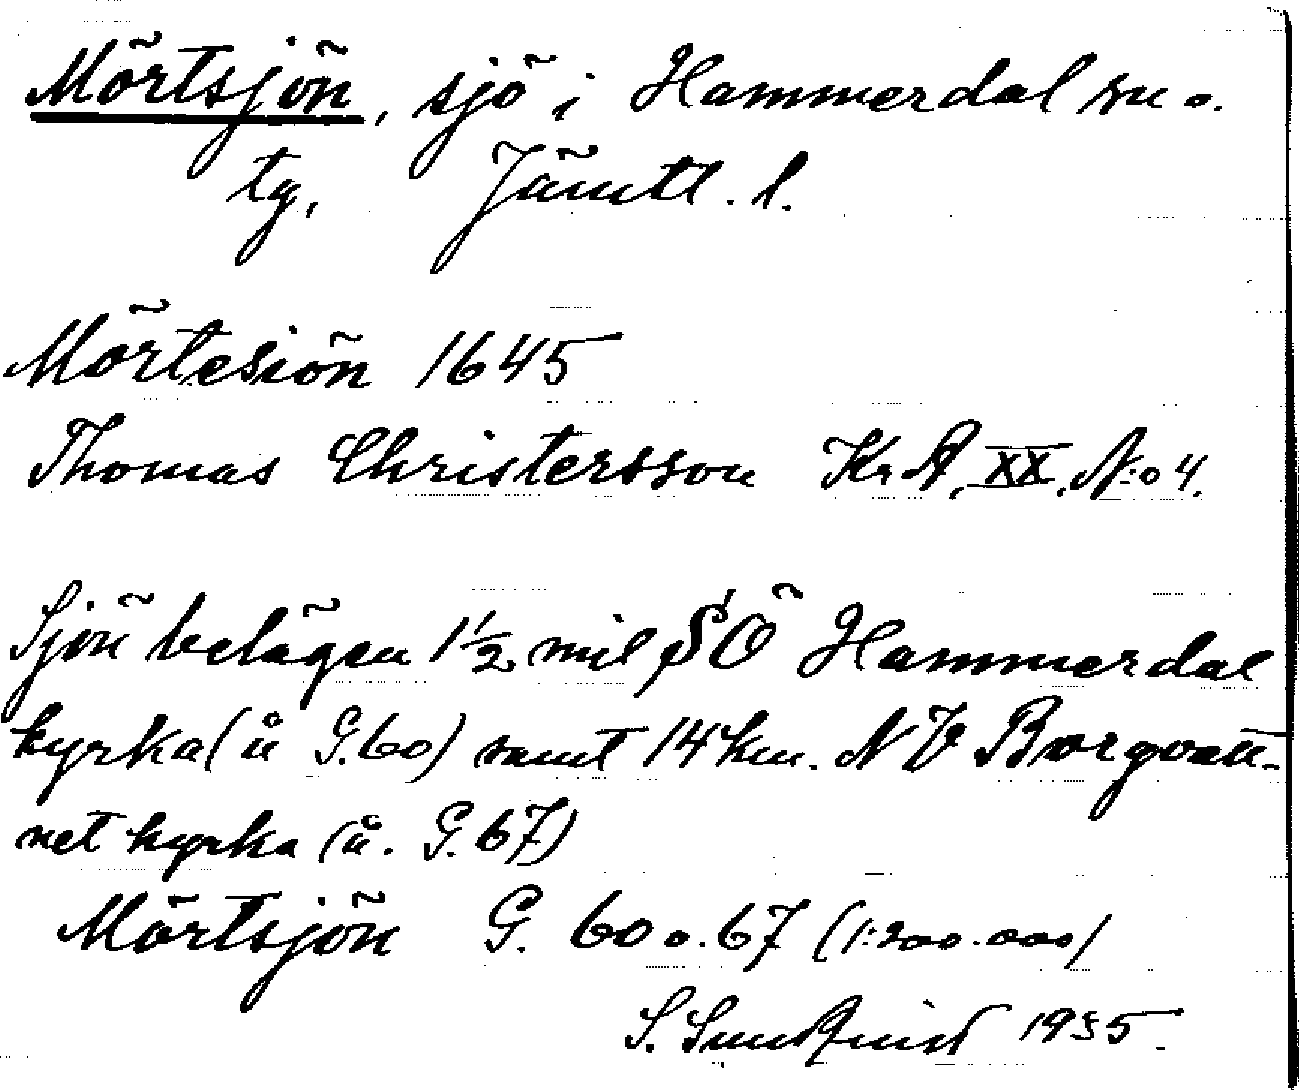 Mörtsjön, sjö i Hammerdal sn o.
tg, Jämtl. l.
Mörtesiön 1645
Thomas Christersson KrA, XX, N:o 4.
Sjön belägen 1 1/2 mil SÖ Hammerdal
kyrka (å G.60) samt 14 km. NV Borgvatt-
net kyrka (å. G. 67)
Mörtsjön G. 60 o. 67 (1:200.000)
S. Sundqvist 1935.